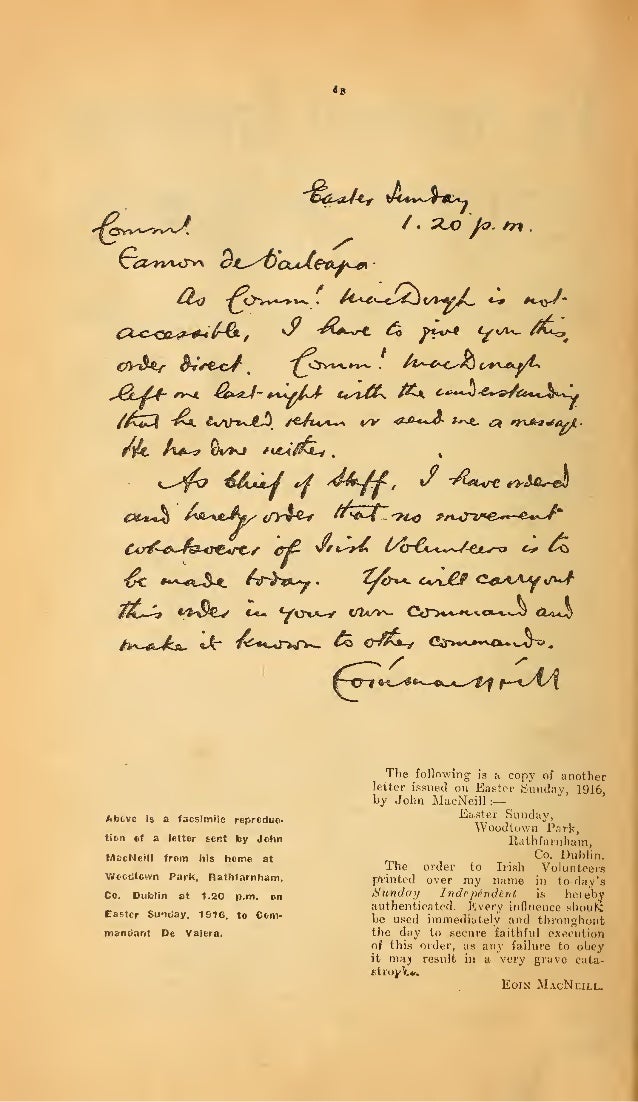 Easter Sunday
1.20 p.m.
Commt.
Eamon de Bailéara.
As Commt. MacDonagh is not
accessible, I have to give you this
order direct. Commt. MacDonagh
left me last night with the understanding
that he would return or send me a message.
He has done neither.
As Chief of Staff, I have ordered
and hereby order that no movement
whatsoever of Irish Volunteers is to
be made today. You will carry out
this order in your own command and
make it known to other commands.
Eoin MacNeill
Above is a facsimile reproduc-
tion of a letter sent by John
MacNeill from his home at
Woodtown Park, Rathfarnham,
Co. Dublin at 1.20 p.m. on
Easter Sunday, 1916, to Com-
mandant De Valera.
The following is a copy of another
letter issued on Easter Sunday, 1916,
by John MacNeill :—
Easter Sunday,
Woodtown Park,
Rathfarnham,
Co. Dublin.
The order to Irish Volunteers
printed over my name in to-day's
Sunday Independent is hereby
authenticated. Every influence should
be used immediately and throughout
the day to secure faithful execution
of this order, as any failure to obey
it may result in a very grave cata-
strophe.
Eoin MacNeill.